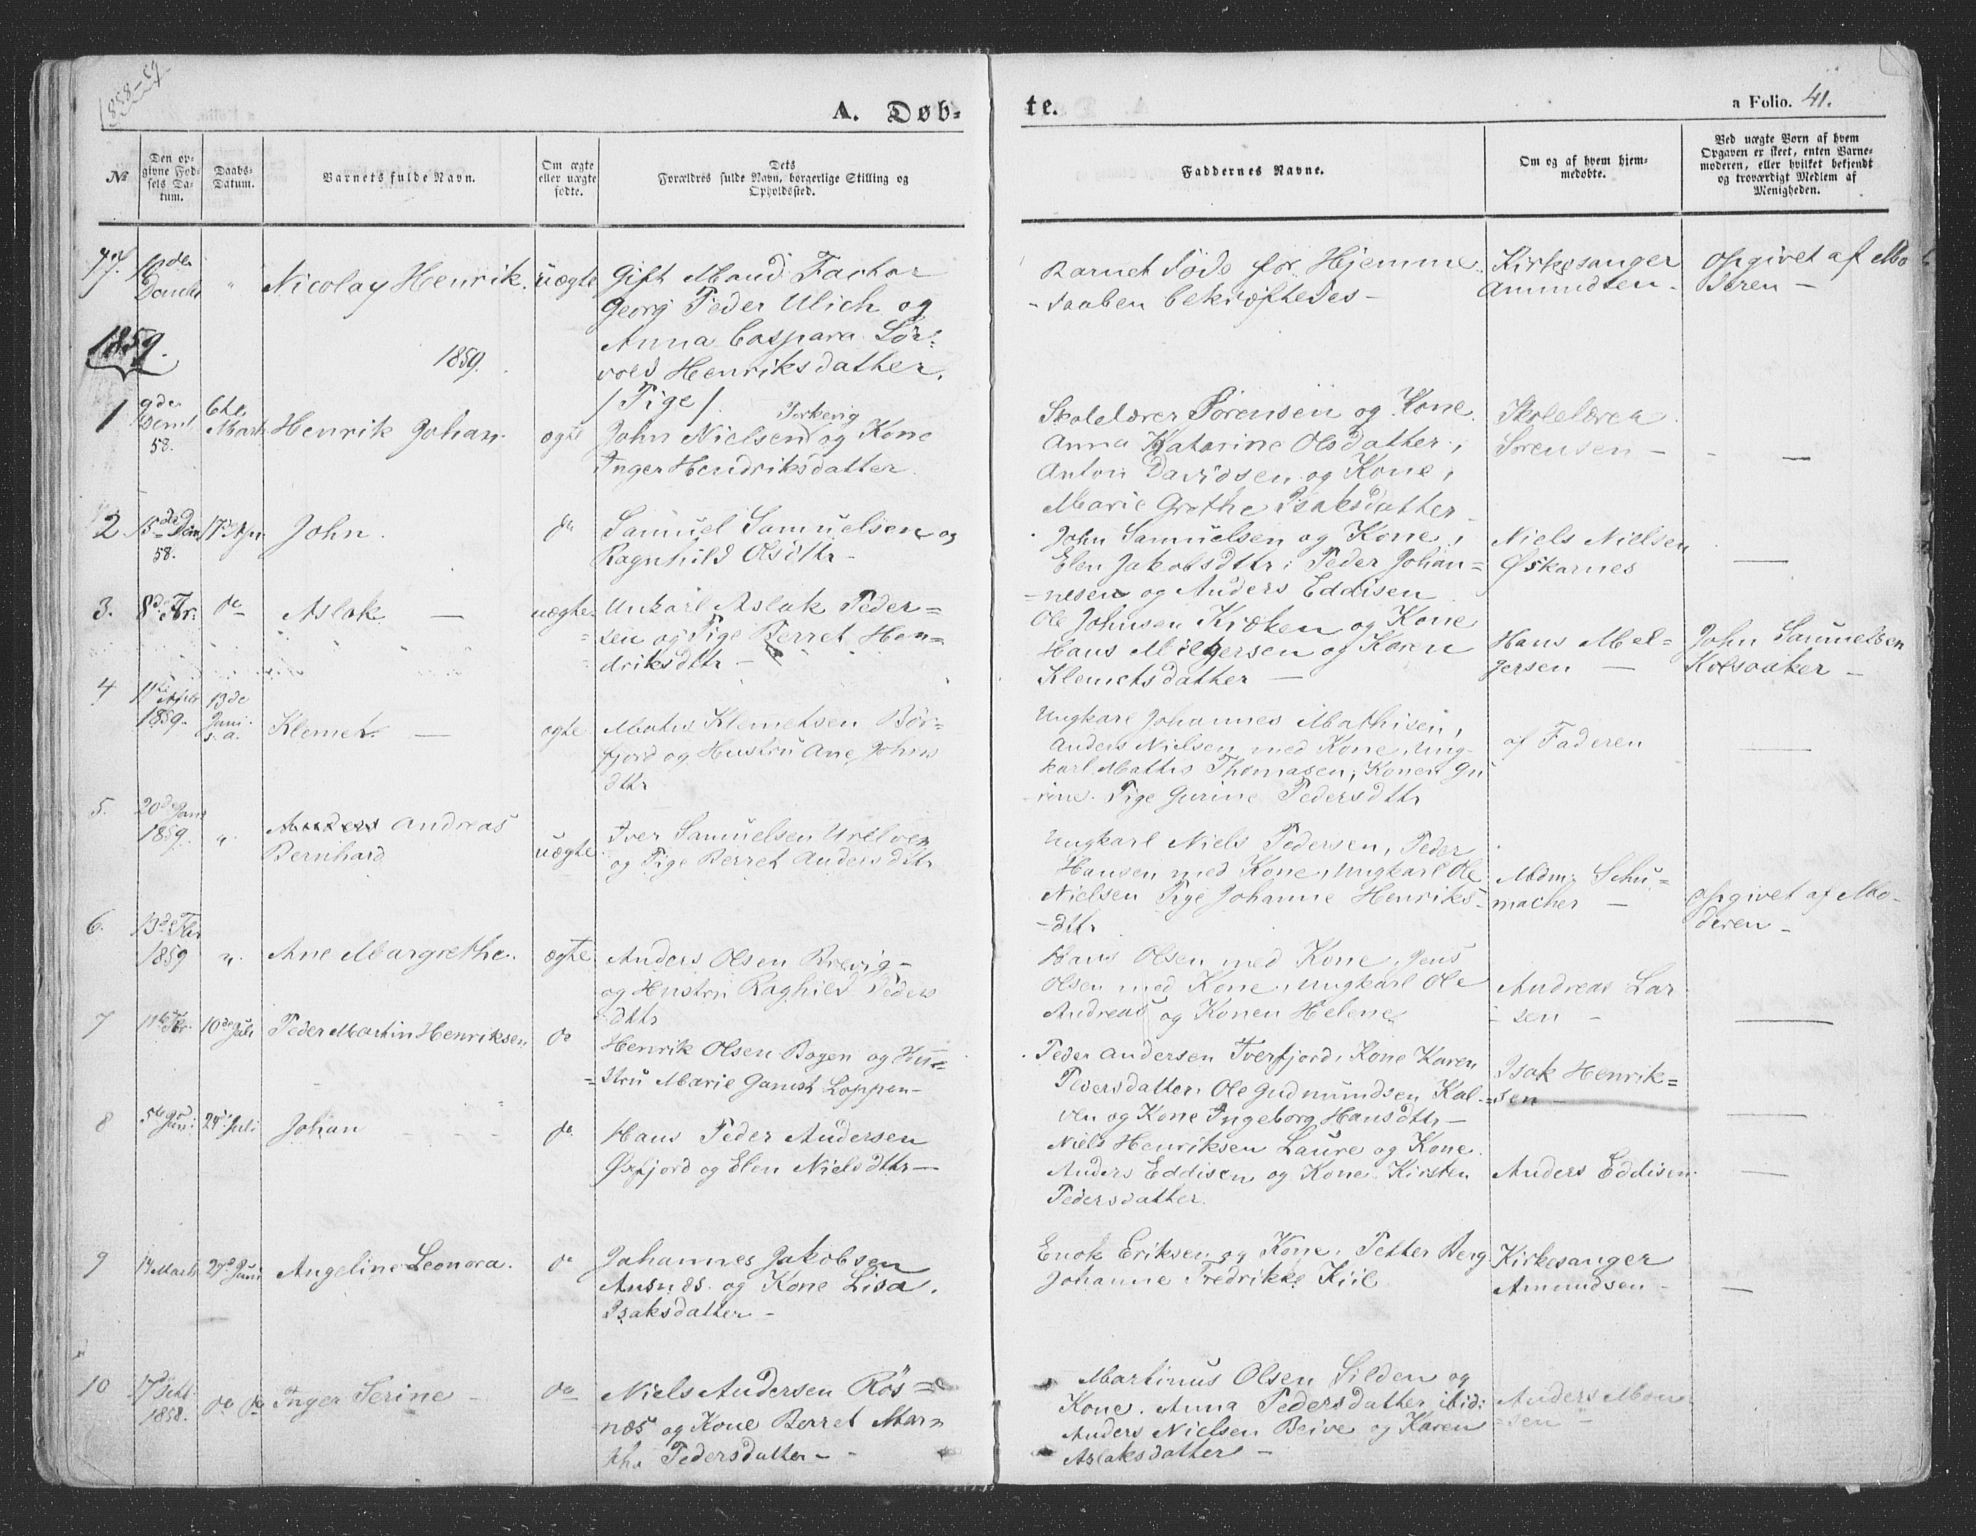 1858-59
A. Døb-
te.
a Folio. 41.
№
Den op-
givne Fød-
sels Da-
tum.
Daabs-
Datum.
Barnets fulde Navn.
Om ægte
eller uægte
fødte.
Dets
Forældres fulde Navn, borgerlige Stilling og
Opholdssted.
Faddernes Navne.
Om og af hvem hjem-
medøbte.
Ved uægte Børn af hvem
Opgaven er skeet, enten Barne-
moderen, eller hvilket bekjendt
og troværdigt Medlem af
Menigheden.
Nicolay Henrik.
uægte
Gift Mand Factor
Georg Peder Ulich og
Anna Caspara Sør-
vold Henriksdatter.
/ Pige /.
Barnet døde før Hjemme-
daaben bekræftedes -
Kirkesanger
Amundsen -
Opgivet af Mo-
deren -
1859.
1859.
1
9de
58.
6te
Marts
Henrik Johan
ægte
John Nielsen og Kone
Inger Hendriksdatter.
Skolelærer Sørensen og Kone
Anna Katarine Olsdatter,
Anton Davidsen og Kone,
Marie Grethe Isaksdatter
Skolelærer
Sørensen -
-
2
15de
58.
17de Apr.
John.
do
Samuel Samuelsen og
Ragnhild Olsdttr -
John Samuelsen og Kone,
Elen Jakobsdttr; Peder Johan=
=nesen og Anders Eddisen
Niels Nielsen
Øskarnes
-
3.
do
Aslak -
uægte
Unkarl Aslak Peder=
sen og Pige Berret Hen=
driksdttr -
Ole Johnsen Kroken og Kone
Hans Meljersen og Karen
Klemetsdatter -
Hans Mel=
jersen -
John Samuelsen
Kolsvaaker -
4
11te April
1859.
13de
Juni
s. a.
Klemet -
ægte
Matis Klemetsen Bør-
fjord og Hustru Ane Johns
dttr
Ungkarl Johannes Mathisen,
Anders Nielsen med Kone, Ung-
karl Mattis Thomasen, Konen Gu
rine. Pige Gurine Pedersdttr
af Faderen
-
5.
20de Janr
1859.
"
Anders Andreas
Bernhard
uægte
Iver Samuelsen
og Pige Berret Andersdttr
Ungkarl Niels Pedersen, Peder
Hansen med Kone, Ungkarl Ole
Nielsen Pige Johanne Henriks-
-dttr
Mdm. Schu=
macher -
Opgivet af Mo-
deren -
6.
13de Febr
1859
"
Ane Margrethe.
ægte
Anders Olsen Brevig -
og Hustru Raghild Peders
dttr
Hans Olsen med Kone, Jens
Olsen med Kone, Ungkarl Ole
Andreas og Konen Helene
Andreas Lar
- sen -
-
7
10de Juli
Peder Martin Henriksen
do
Henrik Olsen Bogen og Hu=
=stru Marie Gamst Loppen -
Peder Andersen Tverfjord, Kone Karen
Pedersdatter, Ole Gudmundsen Kal-
ven og Kone Ingeborg Hansdttr -
Isak Henrik=
=sen
-
8
5te Juni
24de Juli
Johan
do
Hans Peder Andersen
Øxfjord og Elen Nielsdttr -
Niels Henriksen Laure og Kone
Anders Eddisen og Kone Kirsten
Pedersdatter.
Anders Eddisen
-
9
14 Marts
27de Juni
Angeline Leonora.
do
Johannes Jakobsen
Ansnæs. og Kone Lisa
Isaksdatter -
Enok Eriksen og Kone, Petter Berg
Johanne Fredrikke Kiil
Kirkesanger
Amundsen -
-
10
17de
1858.
do do
Inger Serine -
do
Niels Andersen Røs=
næs og Kone Berret Mar=
the Pedersdatter -
Martinus Olsen Silden og
Kone. Anna Pedersdatter ibid:
Anders Nielsen Beive og Karen
Aslaksdatter -
Anders Mon
=sen -